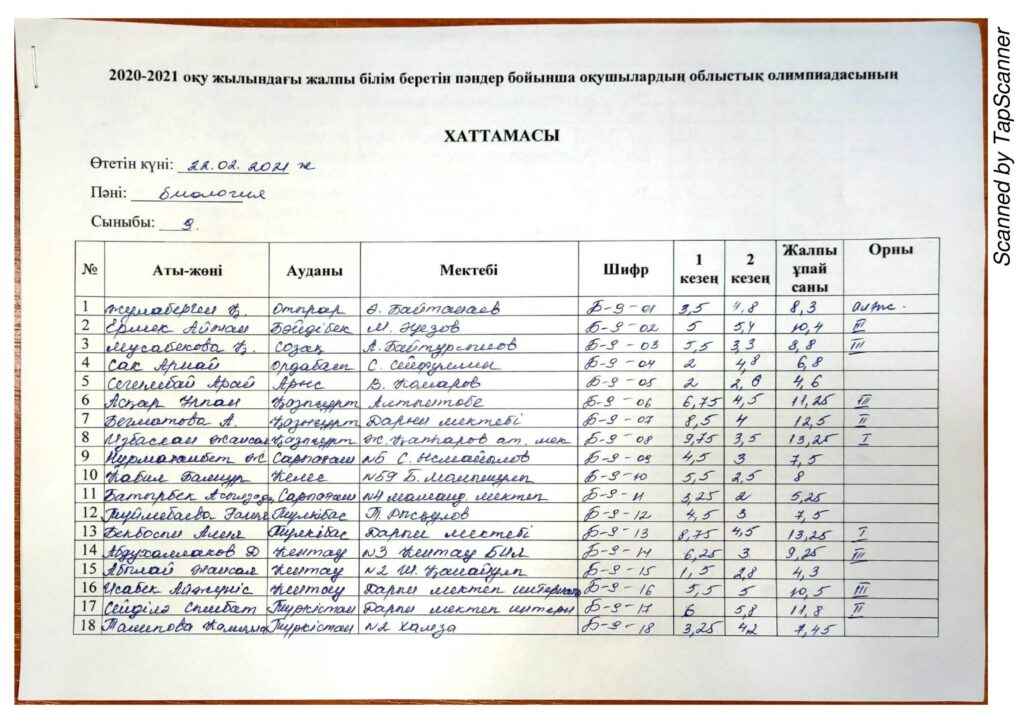 2020-2021 оқу жылындағы жалпы білім беретін пәндер бойынша оқушылардың облыстық олимпиадасының
ХАТТАМАСЫ
Өтетін күні: 22.02.2021 ж
Пәні: Биология
Сыныбы: 9.
№ Аты-жөні Ауданы Мектебі Шифр 1 кезең 2 кезең Жалпы ұпай саны Орны
1 Отырар Ә. Байтанаев Б-9-01 3,5 4,8 8,3
2 Ермек Айжан Бәйдібек М. Әуезов Б-9-02 5 5,4 10,4 III
3 Мусабекова Қ. Созақ А. Байтұрсынов Б-9-03 5,5 3,3 8,8 III
4 Сақ Армай Ордабасы С. Сейфуллин Б-9-04 2 4,8 6,8
5 Арай Арыс В. Комаров Б-9-05 2 2,6 4,6
6 Асқар Қазығұрт Алтынтөбе Б-9-06 6,75 4,5 11,25 III
7 Бегматова А. Қазығұрт Дарын мектебі Б-9-07 8,5 4 12,5 II
8 Избасхан Жансая Қазығұрт ат. мек Б-9-08 9,75 3,5 13,25 I
9 Нурмаханбет Ж Сарыағаш N5 С. Исмайылов Б-9-09 4,5 3 7,5
10 Келес N59 Б. Момышұлы Б-9-10 5,5 2,5 8
11 Батырбек Сарыағаш N4 маманд. мектеп Б-9-11 3,25 2 5,25
12 Түймебаева Түлкібас Т. Рысқұлов Б-9-12 4,5 3 7,5
13 Бекбосын Түлкібас Дарын мектебі Б-9-13 8,75 4,5 13,25 I
14 Кентау N3 Кентау БИЛ Б-9-14 6,25 3 9,25 III
15 Абылай Жансая Кентау N2 Б-9-15 1,5 2,8 4,3
16 Исабек Кентау Дарын мектеп интернат Б-9-16 5,5 5 10,5 III
17 Сейділә Спымбат Түркістан Дарын мектеп интерн Б-9-17 6 5,8 11,8 II
18 Талипова Түркістан N2 Хамза Б-9-18 3,25 4,2 7,45
Scanned by TapScanner